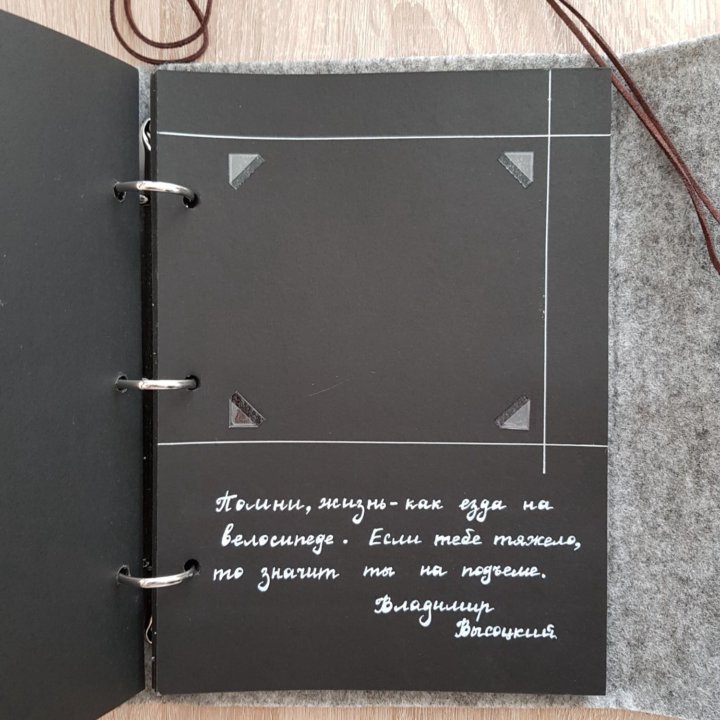 Помни, жизнь - как езда на
велосипеде. Если тебе тяжело,
то значит ты на подъеме.
Владимир
Высоцкий.